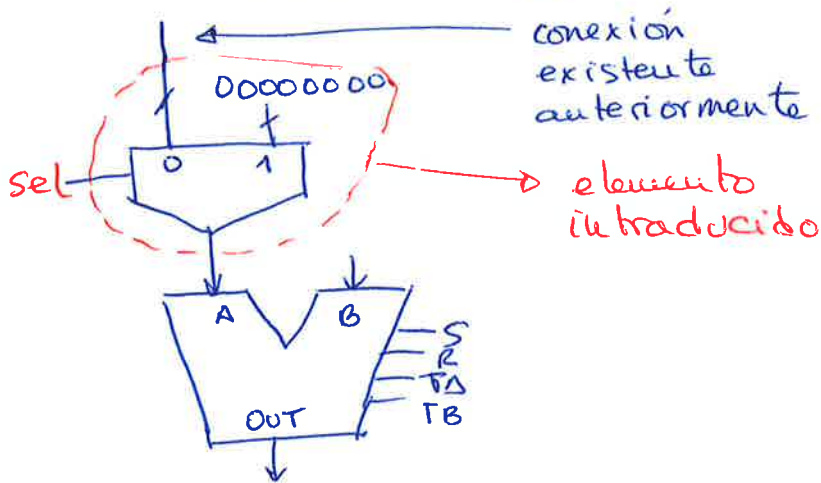 conexión
existente
anteriormente
00000000
0 1
sel
elemento
intraducido
A B
S
R
TA
TB
OUT